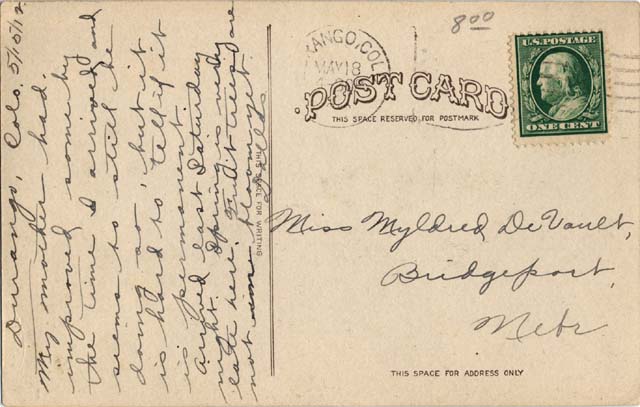 Durango, Colo. 5/15/12
My mother had
improved some by
the time I arrived and
seems to still be
doing so, but it
is hard to tell if it
is permanent.
Arrived last Saturday
night. Spring is very
late here. Fruit trees are
not in bloom yet.
8 00
RANGO, COL
MAY 18
U.S. POSTAGE
ONE CENT
POST CARD
THIS SPACE RESERVED FOR POSTMARK
THIS SPACE FOR WRITING
Miss Myldred DeVault,
Bridgeport,
Nebr
THIS SPACE FOR ADDRESS ONLY